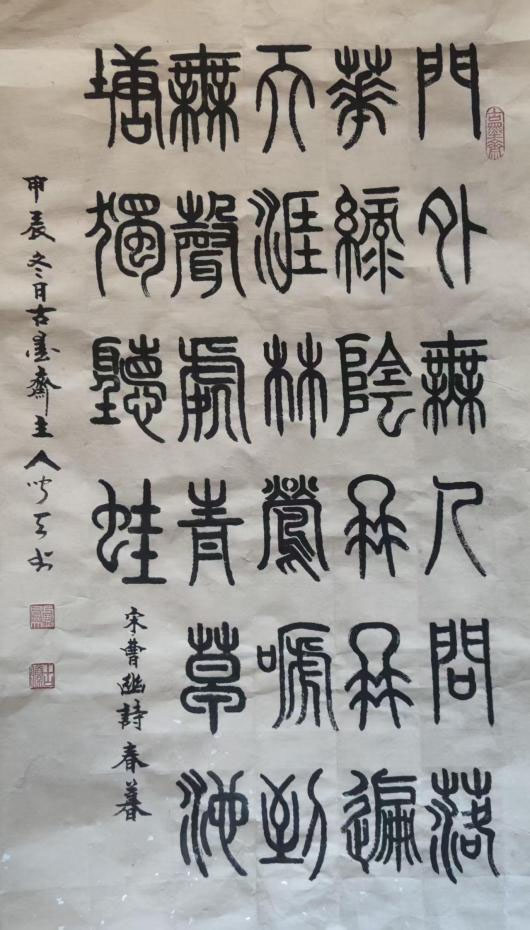 古墨齋
門外無人問落
華綠陰冉冉遍
天涯林鶯嗁到
無聲處青草池
塘獨聽蛙
宋曹豳詩春暮
甲辰冬日古墨齋主人